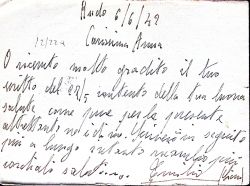 Rudo 6/6/42
Carissima Anna
O ricevuto molto gradito il tuo
scritto del 28/5 contento della tua buona
salute come pure per la presente
altrettanto noi di me. Scriverò in seguito
più a lungo intanto
cordiali saluti....